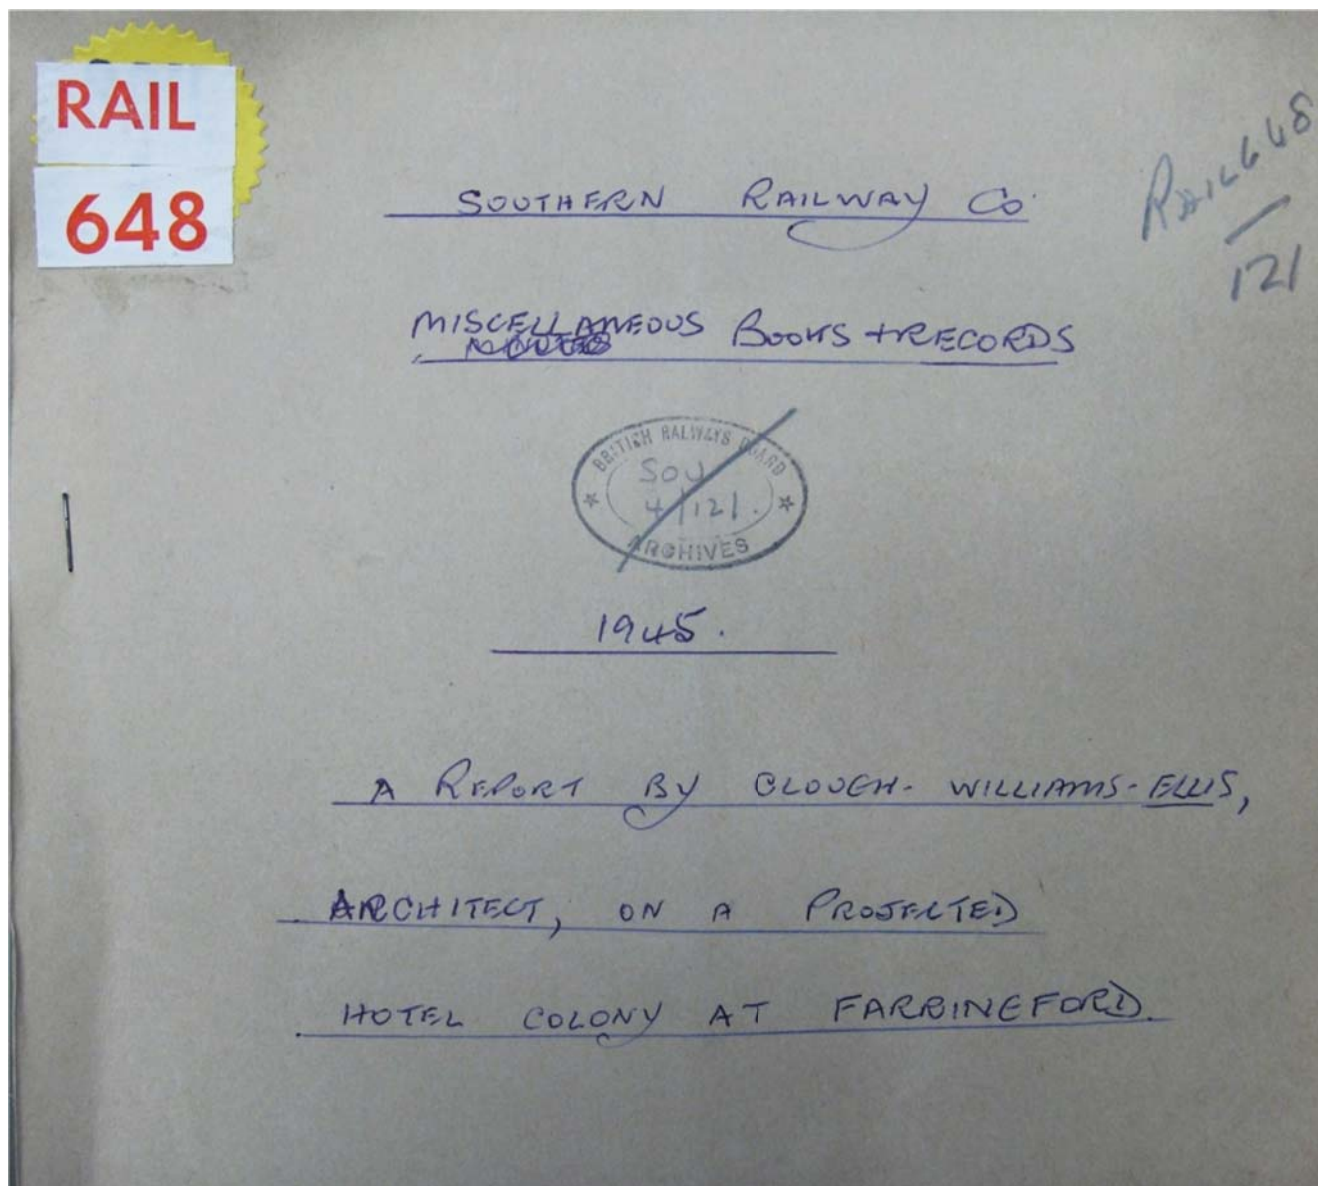 RAIL
648
RAIL 648
121
SOUTHERN RAILWAY Co.
MISCELLANEOUS BOOKS + RECORDS
BRITISH RAILWAYS BOARD
SOU
4/121.
ARCHIVES
1945.
A REPORT BY CLOUGH-WILLIAMS-ELLIS,
ARCHITECT, ON A PROJECTED
HOTEL COLONY AT FARRINEFORD.